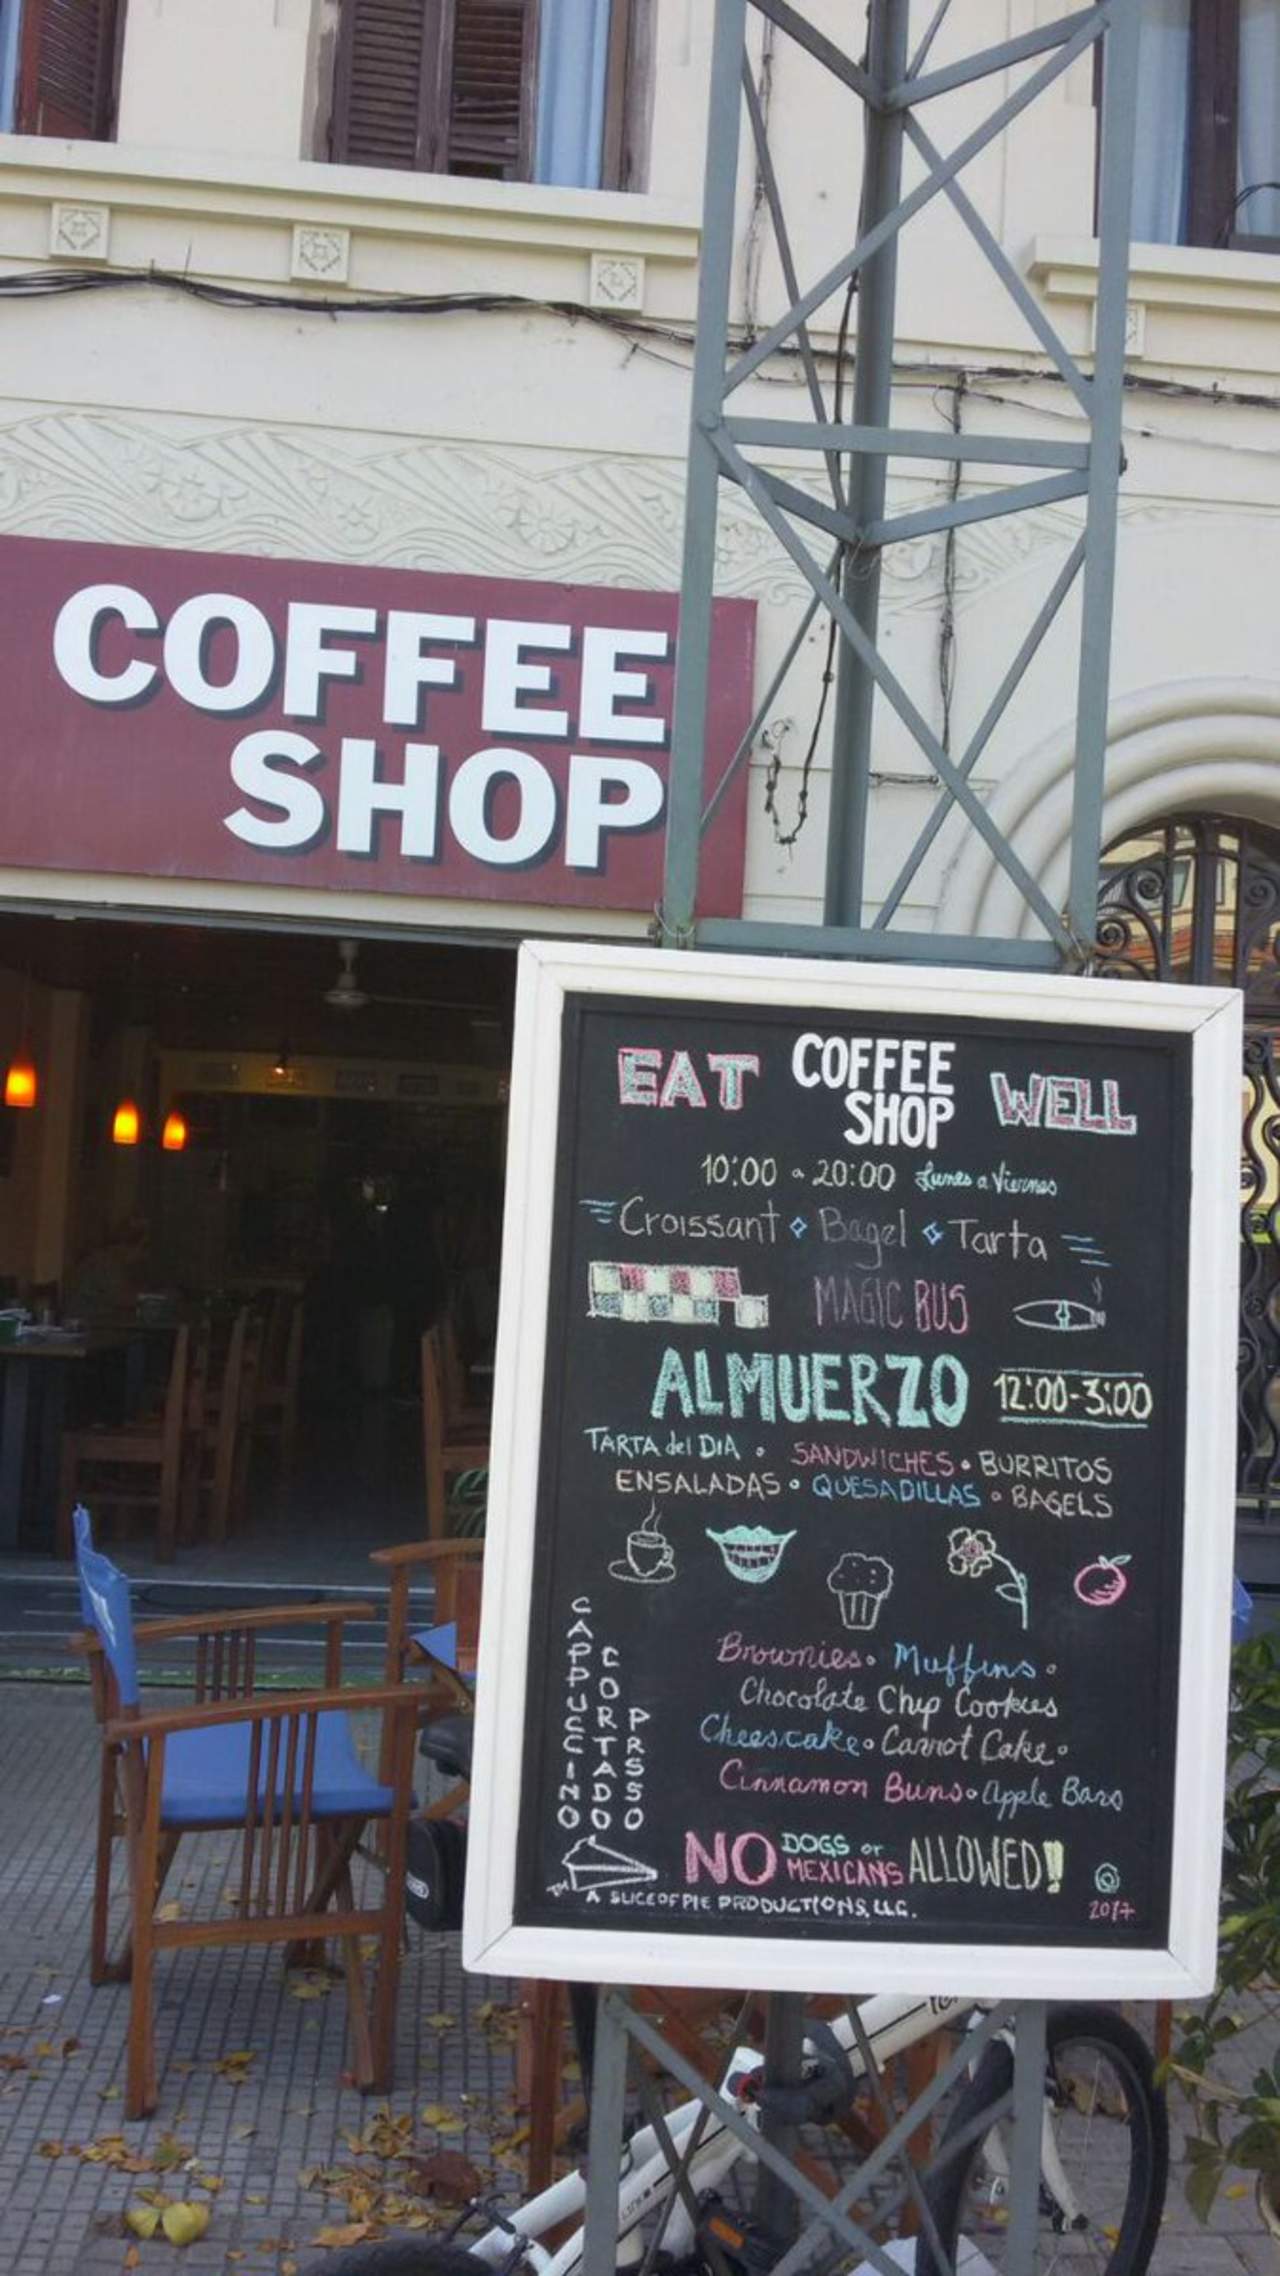 COFFEE
SHOP
EAT COFFEE SHOP WELL
10:00 a 20:00 Lunes a Viernes
Croissant Bagel Tarta
MAGIC BUS
ALMUERZO 12:00-3:00
TARTA del DIA • SANDWICHES • BURRITOS
ENSALADAS • QUESADILLAS • BAGELS
CAPPUCCINO
CORTADO
PRSSO
Brownies • Muffins •
Chocolate Chip Cookies
Cheescake • Carrot Cake •
Cinnamon Buns • Apple Bars
NO DOGS or MEXICANS ALLOWED!!
TM A SLICE OF PIE PRODUCTIONS, LLC.
2017